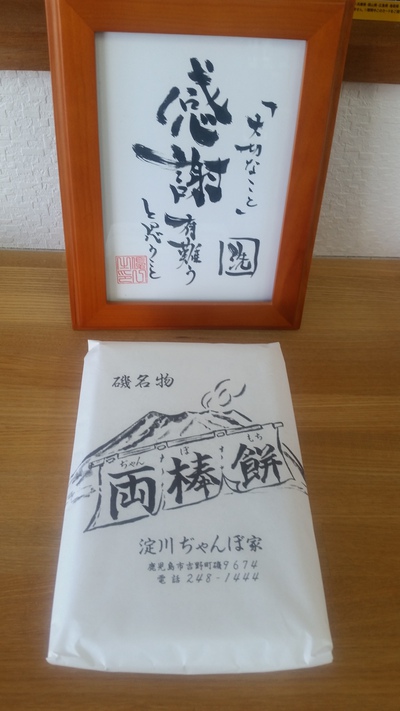 「大切なこと」
感謝
有難う
と思うこと
洗
磯名物
ぢゃん ぼ もち
両棒餅
淀川ぢゃんぼ家
鹿児島市吉野町磯9674
電話 248-1444